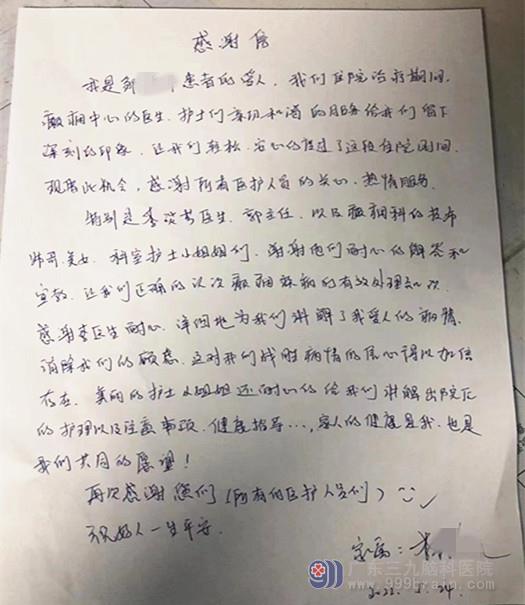 感谢信
我是邹 患者的爱人，我们住院治疗期间，
癫痫中心的医生、护士们亲切和谐的服务给我们留下
深刻的印象，让我们轻松、安心的度过了这段住院时间
现借此机会，感谢所有医护人员的关心、热情服务。
特别是李 医生、郭主任，以及癫痫科的
帅哥、美女、科室护士小姐姐们，谢谢他们耐心的解答和
宣教，让我们正确的认识癫痫疾病的有效处理知识。
感谢李医生耐心、详细地为我们讲解了我爱人的病情，
消除我们的顾虑，这对我们战胜病情的信心得以加倍
存在，美丽的护士小姐姐还耐心的给我们讲解出院后
的护理以及注意事项、健康指导…，家人的健康是我、也是
我们共同的愿望！
再次感谢您们（所有的医护人员们）
祝好人一生平安.
家属：李
2022. 5. 24.
广东三九脑科医院
www.999brain.com